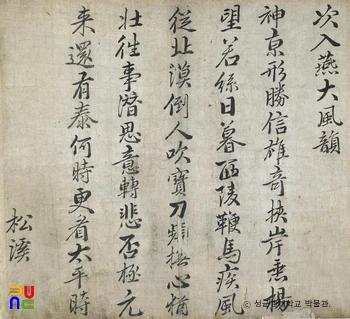 次入燕大風韻
神京形勝信雄奇挟岸垂楊
望若絲日暮西陵鞭馬疾風
從北漠倒人吹寶刀頻撫心猶
壯往事潛思意轉悲否極元
来還有泰何時更看太平時
松溪
© 성균관대학교 박물관